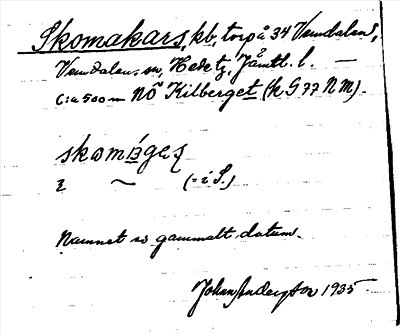 Skomakars, kb, torp å 34 Vemdalen,
Vemdalens sn, Hede tg, Jämtl. l. —
c:a 500 m NÖ Kilberget (h G 77 N M).
2 ~ (= i S.)
Namnet av gammalt datum.
Johan Anderson 1935